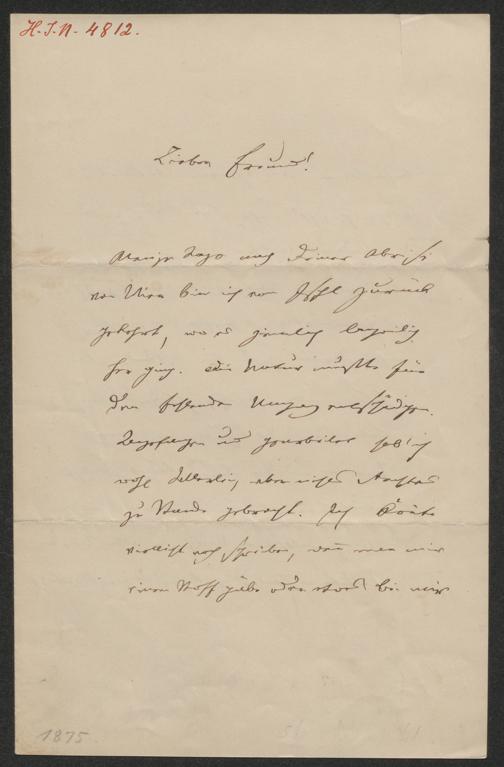 H. I. N. 4812.
Lieber Freund!
Wenige Tage nach Deiner Abreise
von Wien bin ich von Ischl zurück
gekehrt, wo es ziemlich langweilig
her ging. Die Natur mußte für
den fehlenden Umgang entschädigen.
und gearbeitet hab' ich
wohl Allerlei, aber nichts Rechtes
zu Stande gebracht. Ich könte
vielleicht noch schreiben, wen man mir
einen Stoff gäbe oder etwas bei mir
1875